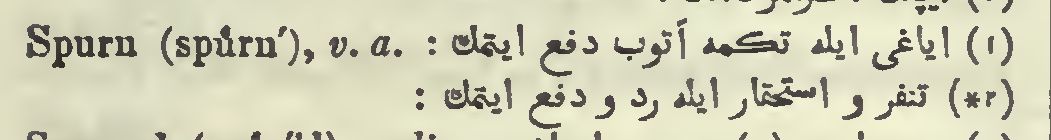 Spurn (spûrn′), v. a. : (١) ایاغی ایله تکمه أتوب دفع ایتمك
(*٢) تنفر و استحقار ایله رد و دفع ایتمك :